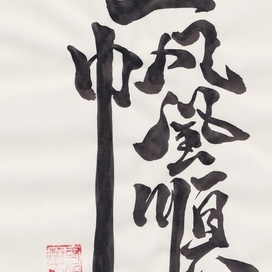 一帆風順